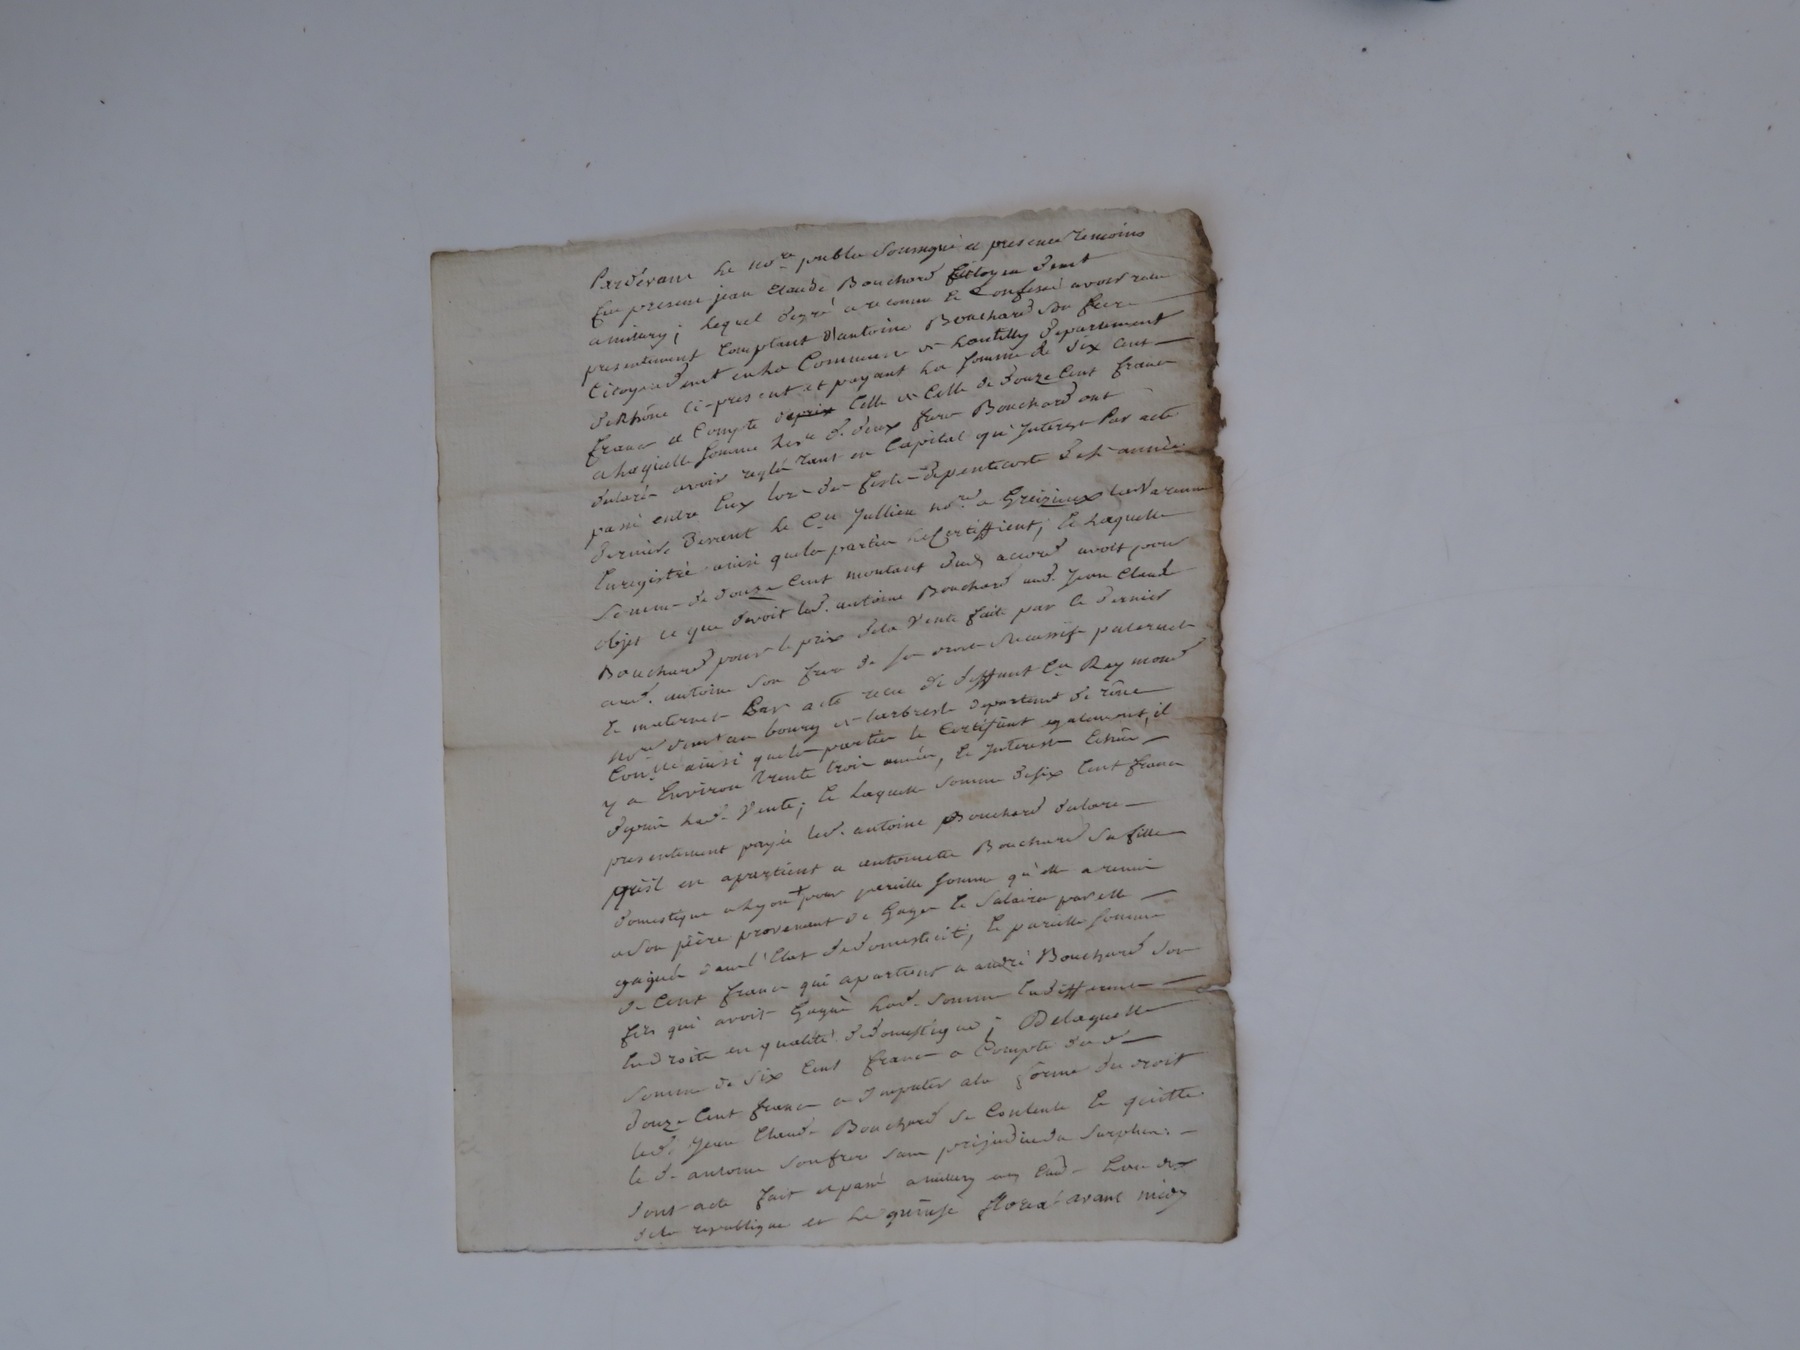 Pardevant le no.re public soussigné et presence temoins
fut present jean Claude Bouchard Citoyen demt
amilery; lequel degré a reconnu et Confessé avoir recu
presentement Comptant d'antoine Bouchard son frere
Citoyen demt en la Commune de Lentilly departement
de Rhône ci-present et payant la somme de six cent
franc a Compte de celle de douze Cent franc
a laquelle somme les d. deux frere Bouchard ont
declaré avoir reglé tant en Capital qu'Interest Par acte
passé entre Eux lors de feste depentecoste de l'année
derniere devant le C.en Jullien no.re a Greizieux la Varenne
Enregistré ainsi que les parties le Certiffient; et laquelle
somme de douze Cent montant dud accord avoit pour
objet ce que devoit led. antoine Bouchard aud. Jean Claude
Bouchard pour le prix de la Vente faite par ce dernier
aud. antoine son frere de ses droits Successifs paternel
et maternel Par acte recu de deffunt C.en Reymond
no.re demt au bourg de Larbresle departemt de rône
ainsi que les parties le Certifient egalement, il
y a Environ trente trois année, et Interest Echus
depuis lad. Vente; et laquelle somme de six Cent franc
presentement payée led. antoine Bouchard declare
qu'il en apartient a antoinette Bouchard sa fille
domestique a Lyon + pour pareille somme qu'elle a remis
a son père provenant de Gages et Salaires par elle
gagnés dans l'Etat de domesticité, et pareille somme
de Cent franc qui apartient a andré Bouchard son
fils qui avoit Gagné lad. somme En differents
Endroits en qualité de domestique; De laquelle
somme de six Cent franc a Compte des d.
douze Cent franc a Imputer a la forme du droit
led. Jean Claude Bouchard se Contente et quitte
le d. antoine son frere sans prejudice du surplus.
dont acte fait et passé a milery
de la republique et le quinze floreal avant midy